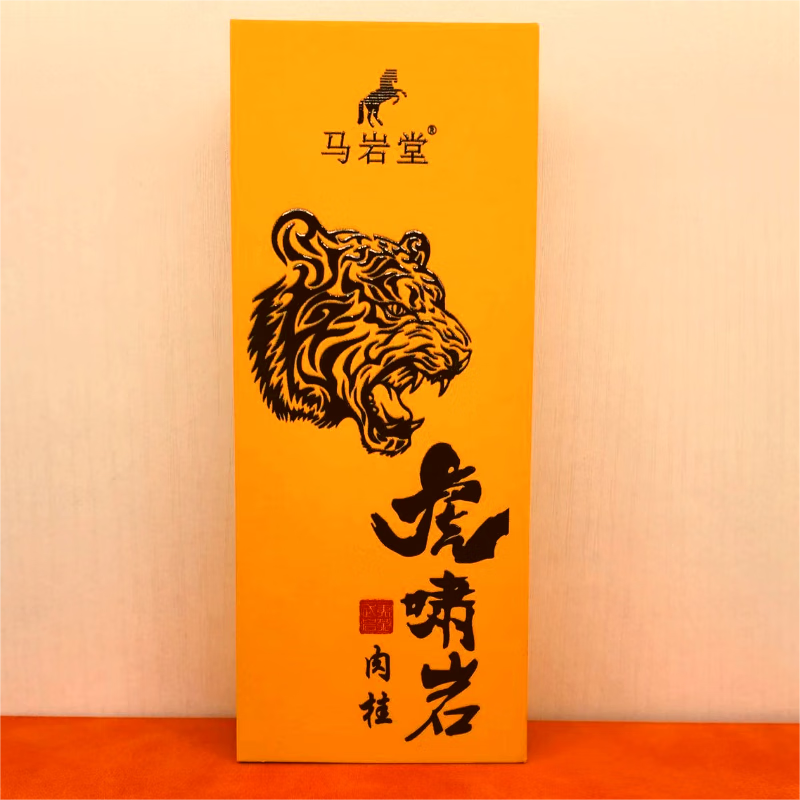 马岩堂®
虎啸岩
肉桂